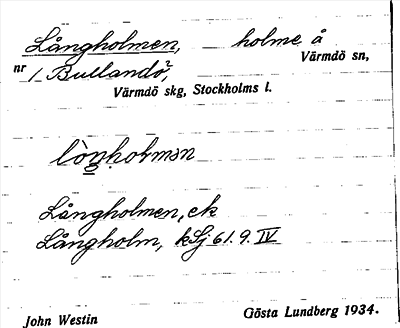 Långholmen, holme å
Värmdö sn,
nr 1 Bullandö,
Värmdö skg, Stockholms l.
Långholmen, ek
Långholm, kSj 61. 9. IV
John Westin Gösta Lundberg 1934.